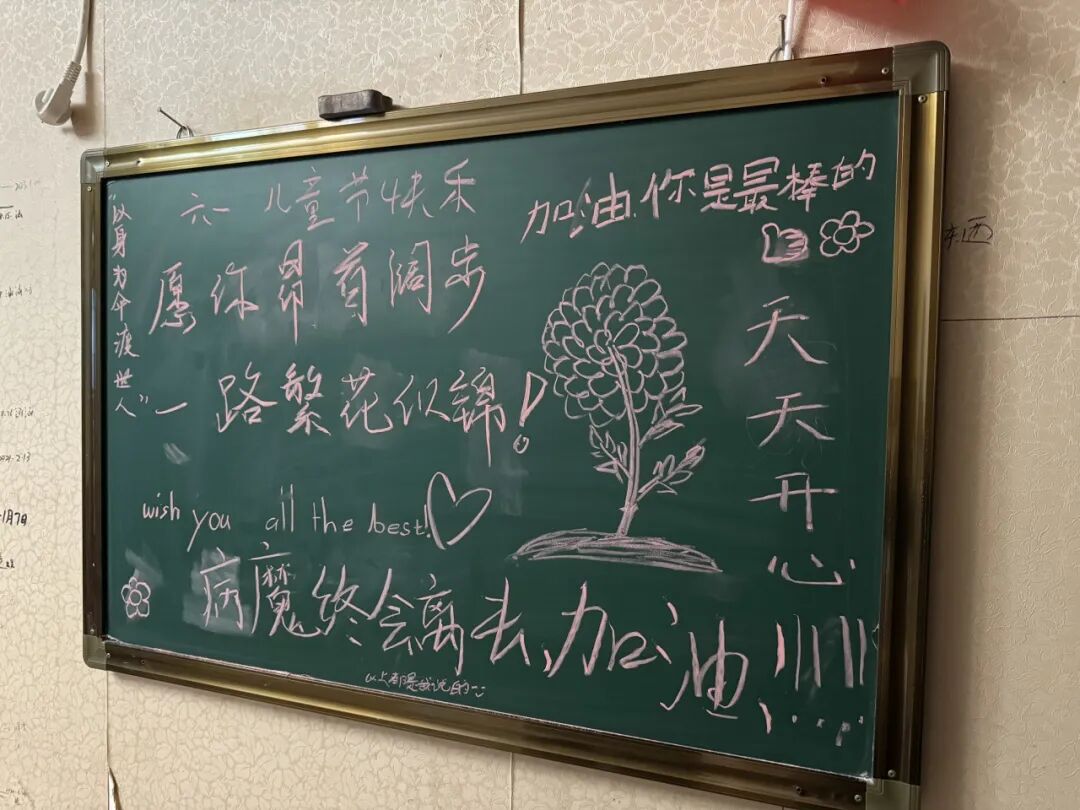 “以身为伞渡世人”
六一 儿童节快乐
愿你昂首阔步
一路繁花似锦!
wish you all the best!
加油你是最棒的
天天开心
病魔终会离去,加油!!!!!
以上都是我说的
东西
1月7日